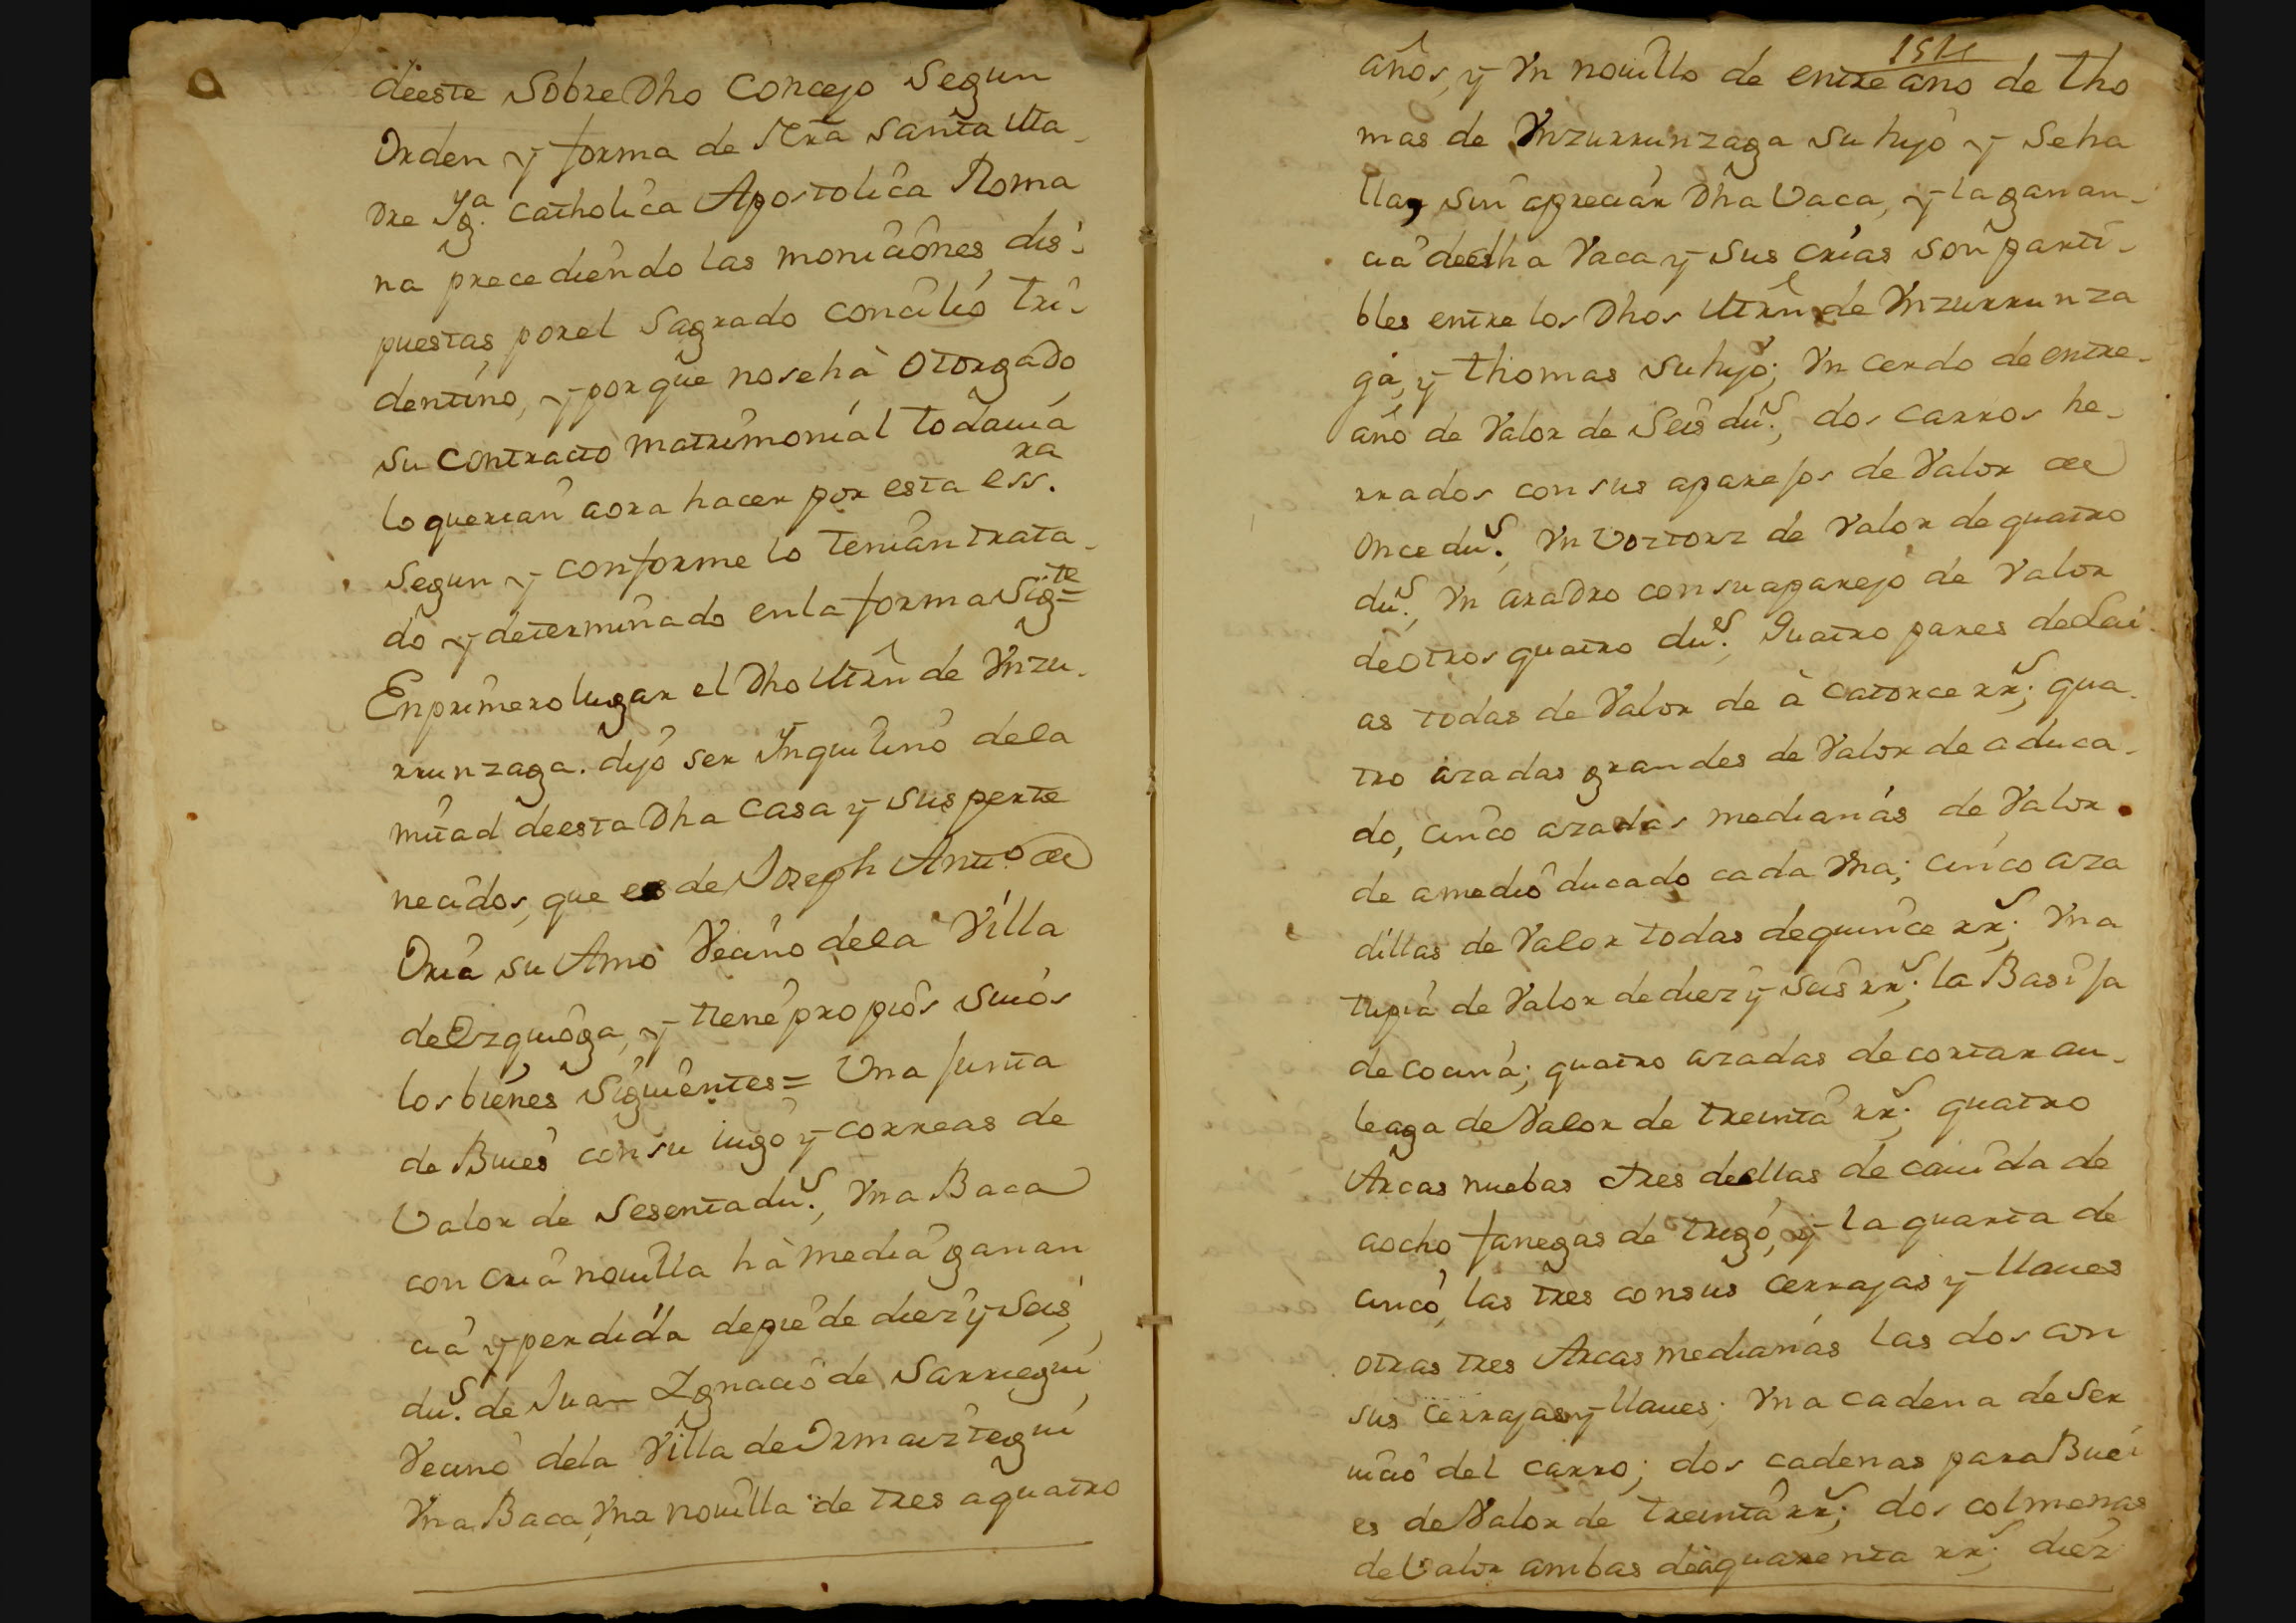 deeste Sobre Dho Concejo Segun
Orden y forma de Nra Santa Ma-
dre Yg.ª Catholica Apostolica Roma
na precediendo las moniciones dis-
puestas porel Sagrado Concilio Tri-
dentino, y porque nosehà Otorgado
su Contracto matrimonial todavia
lo querian aora hacer por esta essra.
Segun y conforme lo tenian trata-
do y determinado enla forma Sigte=
Enprimero lugar el Dho Mrñ de Ynzu-
rrunzaga. dijo ser Inquilino dela
mitad deesta Dha Casa y sus perte
necidos, que es de Joseph Antº de
Oria su Amo Vecino dela Villa
deEzquioga, y tiene propios Suios
los bienes Siguientes= Una Junta
de Bues con su iugo y correas de
Valor de Sesenta dus., Yna Baca
con cria novilla hà media ganan
cia y perdida depie de diez y Seis
dus. de Juan Ignacio de Sarriegui
Vecino dela Villa de Ormaiztegui
Yna Baca, Yna novilla de tres aquatro
1511
años, y Yn novillo de entre año de tho
mas de Ynzurrunzaga su hijo y Seha
lla, sin apreciar Dha Vaca, y la ganan-
cia dedha Vaca y sus crias son parti-
bles entre los Dhos Mrñ de Ynzurrunza
ga, y Thomas su hijo; Yn cerdo de entre-
año de Valor de Seis dus., dos carros he-
rrados con sus aparejos de Valor de
Once dus. Yn Voztorz de Valor de quatro
dus., Yn aradro con su aparejo de Valor
deotros quatro dus., Quatro pares deLai-
as todas de Valor de à catorce rrs; qua-
tro azadas grandes de Valor de aduca-
do, cinco azadas medianas de Valor
de amedio ducado cada Yna; cinco aza
dillas de Valor todas dequince rrs; Yna
tupia de Valor de diez y seis rrs; la Basija
de cocina; quatro azadas decortar au-
leaga de Valor de treinta rrs; quatro
Arcas nuebas tres deellas de cauida de
aocho fanegas de trigo, y la quarta de
cinco, las tres consus cerrajas y llaues
otras tres Arcas medianas las dos con
sus cerrajas y llaues; Yna cadena de ser
uicio del carro; dos cadenas para Buei
es de Valor de treinta rrs; dos colmenas
de Valor ambas deàquarenta rrs; diez